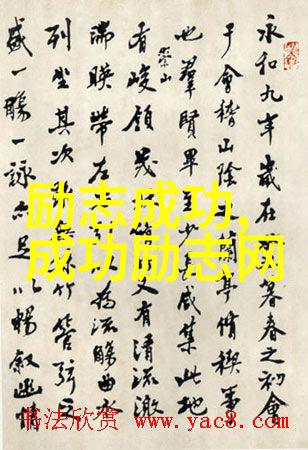 永和九年歲在暮春之初會
于會稽山陰蘭亭脩稧事
也羣賢畢至少咸集此地
崇山
有峻領茂又有清流激
湍暎帶左為流觴曲水
列坐其次竹管弦之
盛一觴一詠亦足以暢敘幽情
励志成功,
成功励志网
书法欣赏 www.yac8.com